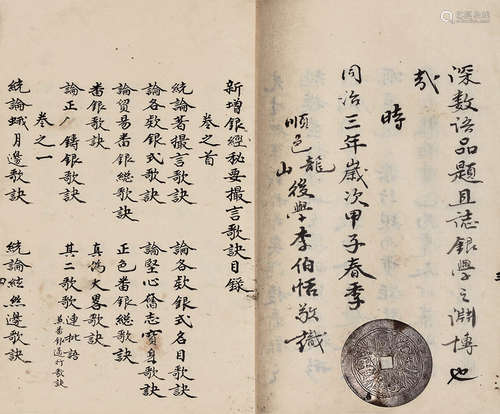 深敖語品題且誌銀學之淵博也
哉
時
同治三年歲次甲子春季
順邑龍山後學李伯悟敬識
新增銀經秘要撮言歌訣目錄
卷之首
統論著撮言歌訣
論各欵銀式名目歌訣
論各欵銀式歌訣
論堅心舊志寶身歌訣
論貿易番銀歌訣
正色番銀總歌訣
番銀歌訣
真偽大畧歌訣
論正 鑄銀歌訣
其二歌歌連批語
並番銀通行歌訣
卷之一
統論蛾月邊歌訣
統論絃絲邊歌訣